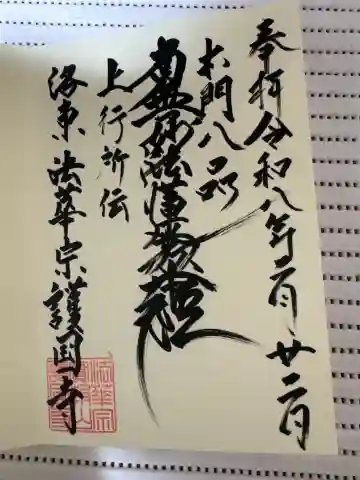 奉拝 令和八年二月廿二日
本門八品
南無妙法蓮華経
上行所伝
洛東 法華宗 護国寺